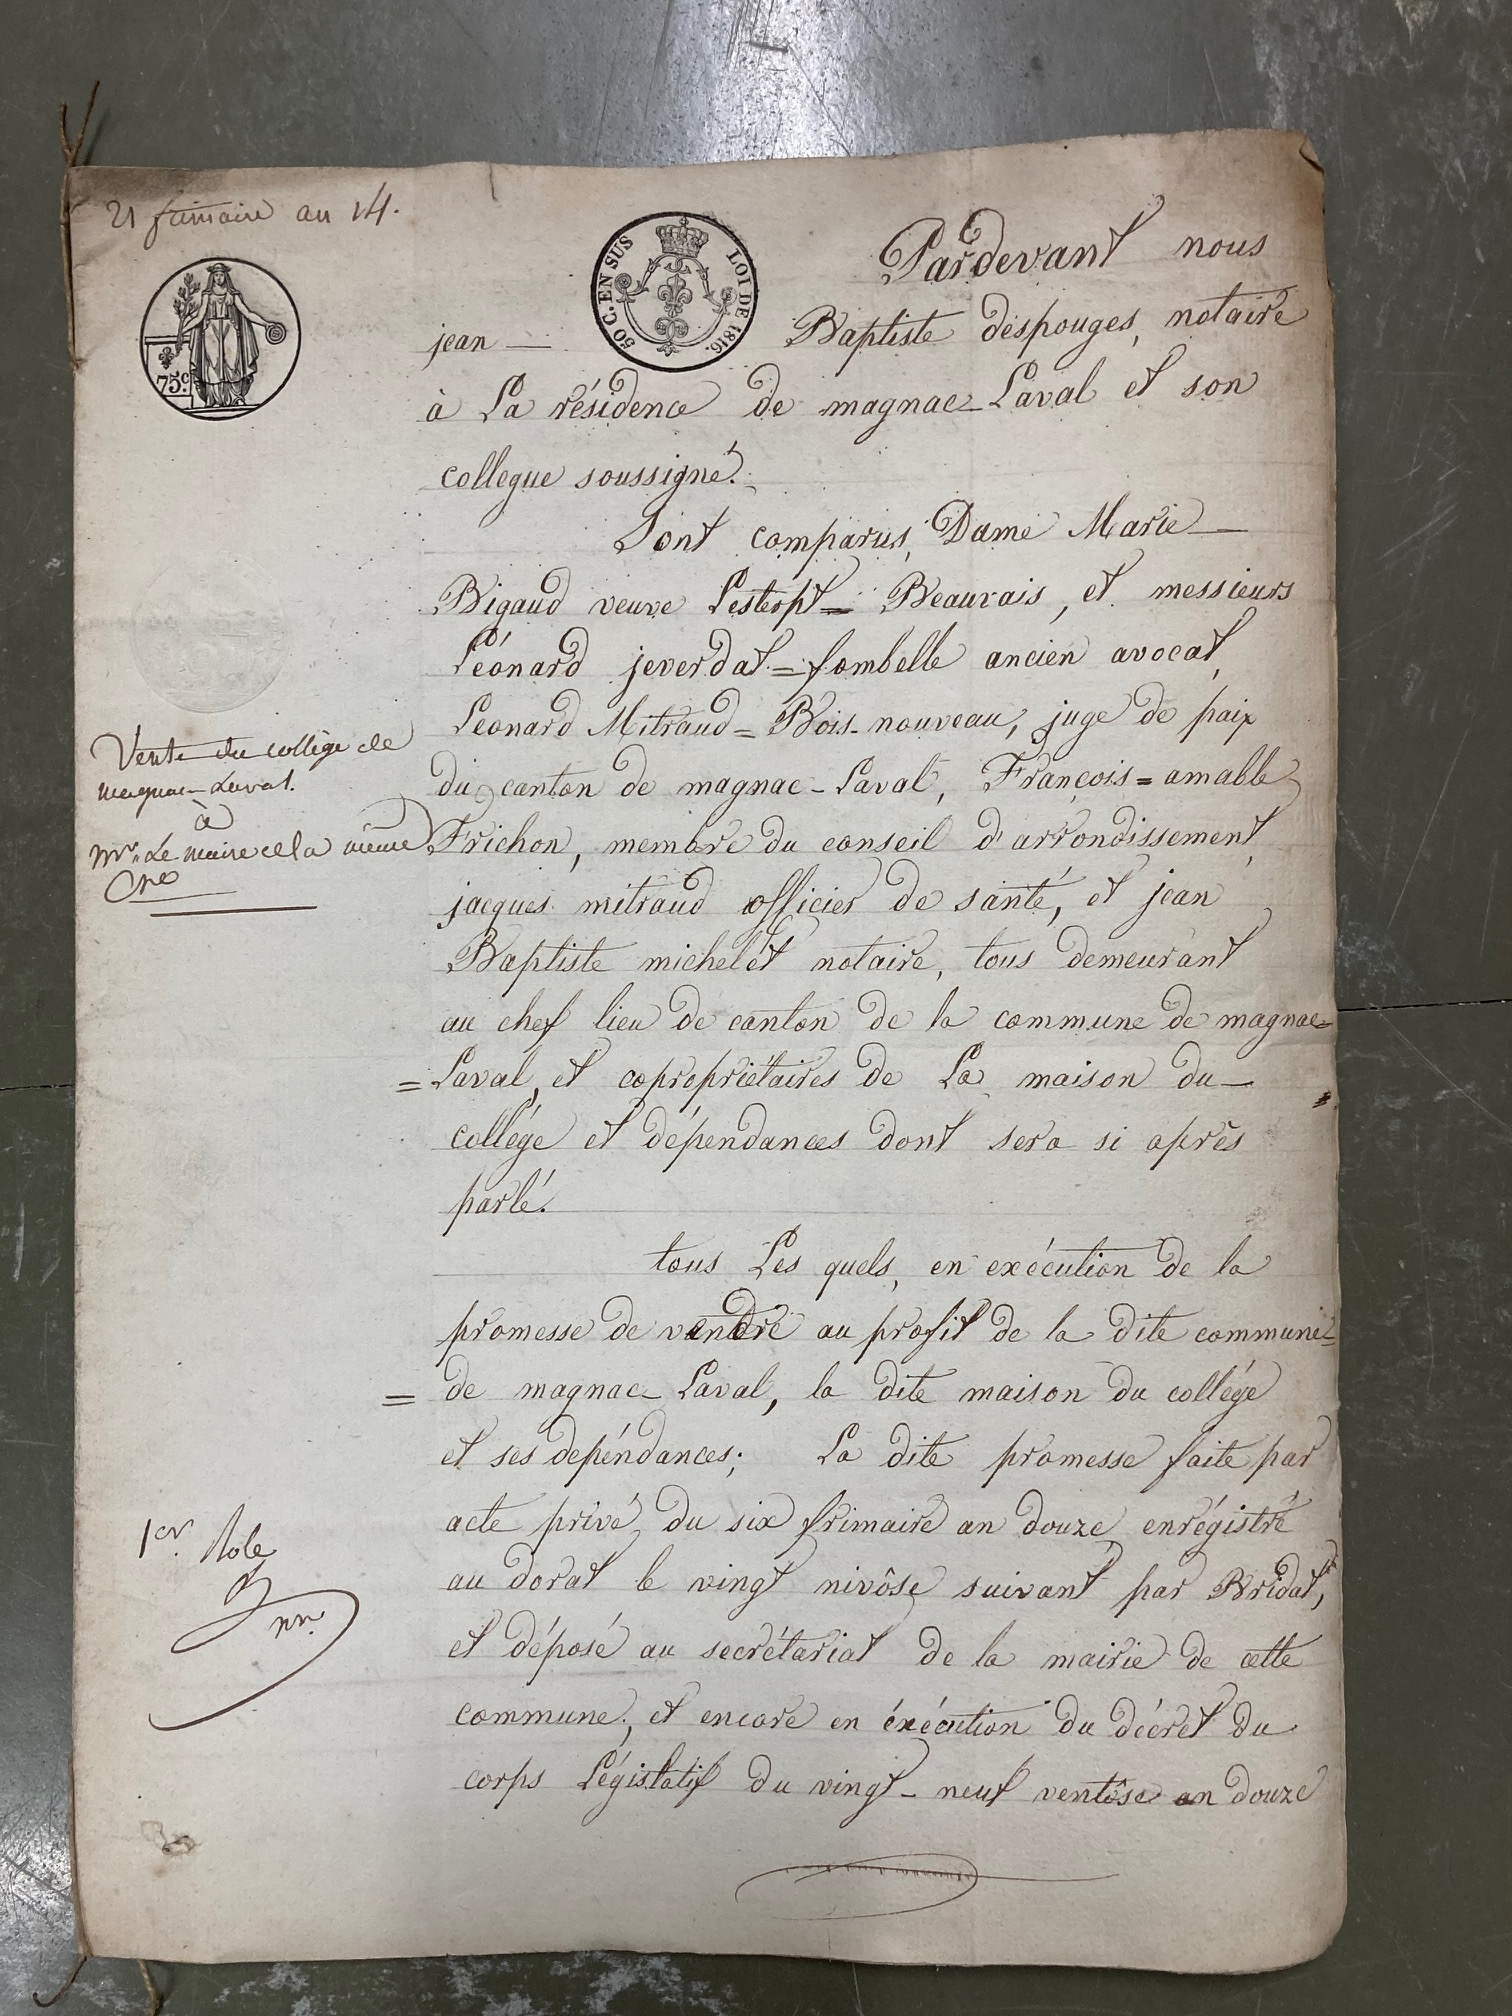 21 frimaire an 14.
50 C. EN SUS LOI DE 1816.
75c.
Pardevant nous
jean — Baptiste despouges, notaire
à La résidence de magnac-Laval et son
collegue soussigné.
Sont comparus, Dame Marie —
Bigaud veuve Lesterpt = Beauvais, et messieurs
Léonard jeverdat = fombelle ancien avocat,
Léonard Mitraud = Bois-nouveau, juge de paix
du canton de magnac-Laval, François = amable
Frichon, membre du conseil d'arrondissement,
jacques mitraud officier de santé, et jean
Baptiste michelet notaire, tous demeurant
au chef lieu de canton de la commune de magnac=
=Laval, et copropriétaires de La maison du —
collége et dépendances dont sera si après
parlé.
tous Les quels, en exécution de la
promesse de vendre au profit de la dite commune=
= de magnac-Laval, la dite maison du collége
et ses dépéndances; La dite promesse faite par
acte privé, du six frimaire an douze, enrégistré
au dorat le vingt nivôse suivant par Bridat,
et déposé au secrétariat de la mairie de cette
commune, et encore en éxécution du décret du
corps Législatif du vingt-neuf ventôse an douze
Vente du collège de
magnac-Laval.
à
Mr. Le maire de la même
Cne
1er. Role